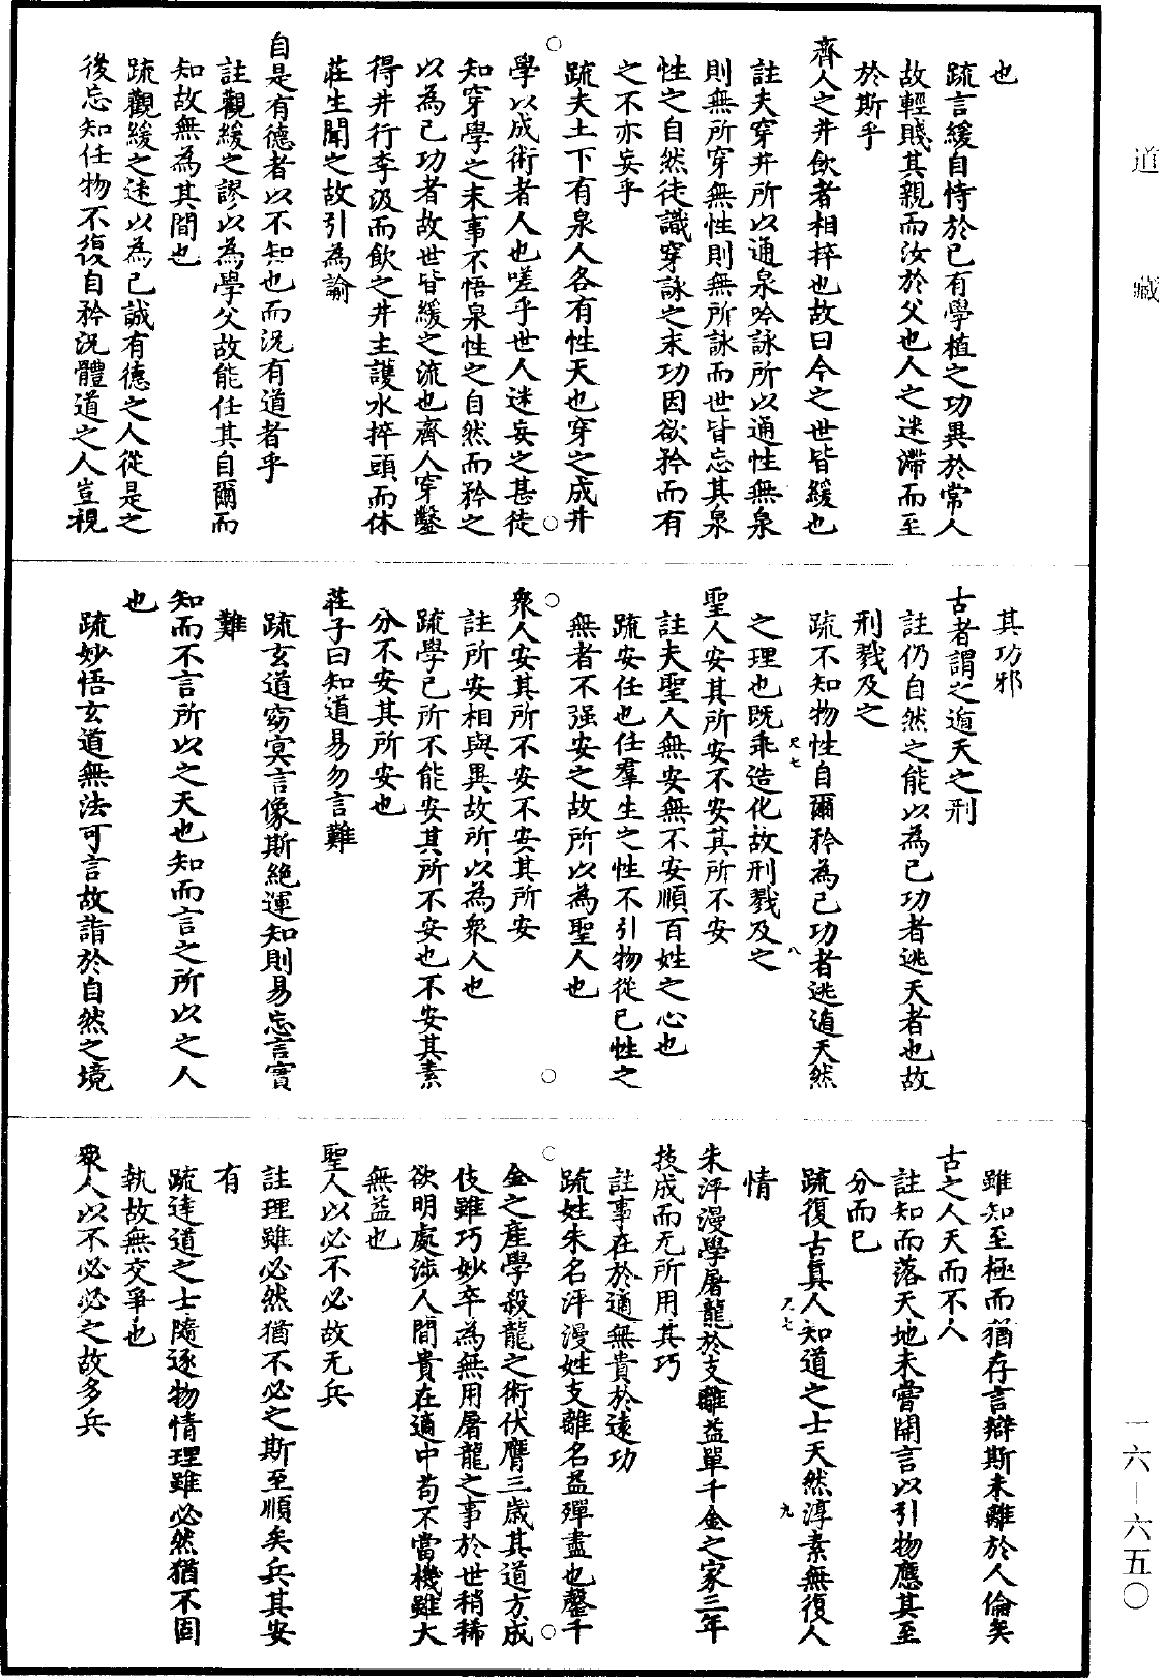 道藏
一六-六五〇
也
疏言緩自恃於己有學植之功異於常人
故輕賤其親而汝於父也人之迷滯而至
於斯乎
齊人之井飲者相捽也故曰今之世皆緩也
註夫穿井所以通泉吟詠所以通性無泉
則無所穿無性則無所詠而世皆忘其泉
性之自然徒識穿詠之末功因欲矜而有
之不亦妄乎
疏夫土下有泉人各有性天也穿之成井
學以成術者人也嗟乎世人迷妄之甚徒
知穿學之末事不悟泉性之自然而矜之
以為己功者故世皆緩之流也齊人穿鑿
得井行李汲而飲之井主護水捽頭而休
莊生聞之故引為諭
自是有德者以不知也而況有道者乎
註觀緩之謬以為學父故能任其自爾而
知故無為其間也
疏觀緩之迷以為己誠有德之人從是之
後忘知任物不復自矜況體道之人豈視
其功邪
古者謂之遁天之刑
註仍自然之能以為己功者逃天者也故
刑戮及之
疏不知物性自爾矜為己功者逃遁天然
之理也既乖造化故刑戮及之
尺七
八
聖人安其所安不安其所不安
註夫聖人無安無不安順百姓之心也
疏安任也任羣生之性不引物從己性之
無者不强安之故所以為聖人也
衆人安其所不安不安其所安
註所安相與異故所以為衆人也
疏學己所不能安其所不安也不安其素
分不安其所安也
莊子曰知道易勿言難
疏玄道窈冥言像斯絶運知則易忘言實
難
知而不言所以之天也知而言之所以之人
也
疏妙悟玄道無法可言故詣於自然之境
雖知至極而猶存言辯斯未離於人倫矣
古之人天而不人
註知而落天地未嘗開言以引物應其至
分而已
疏復古真人知道之士天然淳素無復人
情
尺七
九
朱泙漫學屠龍於支離益單千金之家三年
技成而无所用其巧
註事在於適無貴於遠功
疏姓朱名泙漫姓支離名益殫盡也罄千
金之產學殺龍之術伏膺三歲其道方成
伎雖巧妙卒為無用屠龍之事於世稍稀
欲明處涉人間貴在適中苟不當機雖大
無益也
聖人以必不必故无兵
註理雖必然猶不必之斯至順矣兵其安
有
疏達道之士隨逐物情理雖必然猶不固
執故無交爭也
衆人以不必必之故多兵